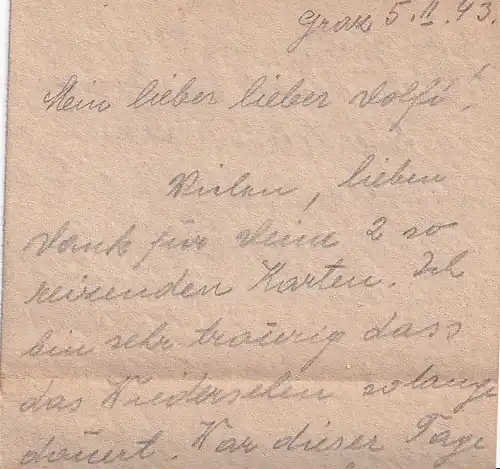 Graz 5.II.43.
Mein lieber lieber Dolfi!
Vielen, lieben
Dank für Deine 2 so
reizenden Karten. Ich
bin sehr traurig dass
das Wiedersehen so lange
dauert. War dieser Tage